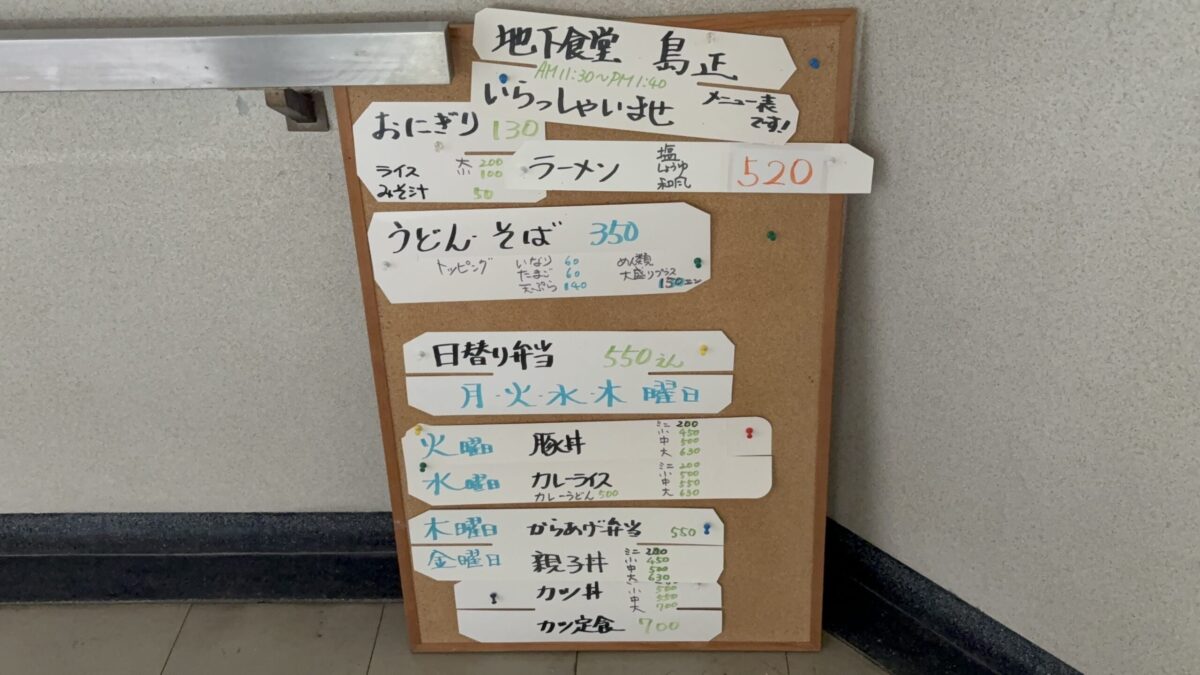 地下食堂 島正
AM11:30～PM1:40
いらっしゃいませ メニュー表です!
おにぎり 130
ライス 大 200
小 100
みそ汁 50
ラーメン 塩 しょうゆ 和風 520
うどん・そば 350
トッピング いなり 60
たまご 60
天ぷら 140
めん類
大盛りプラス
150エン
日替り弁当 550えん
月・火・水・木 曜日
火曜日 豚丼 ミニ 200
小 450
中 500
大 630
水曜日 カレーライス ミニ 200
小 500
中 550
大 630
カレーうどん 500
木曜日 からあげ弁当 550
金曜日 親子丼 ミニ 200
小 450
中 500
大 630
カツ丼 小 500
中 550
大 700
カツ定食 700